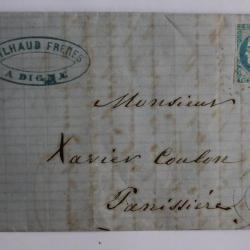 FRERES
A DIGNE
Monsieur
Xavier Coulon
Panissière